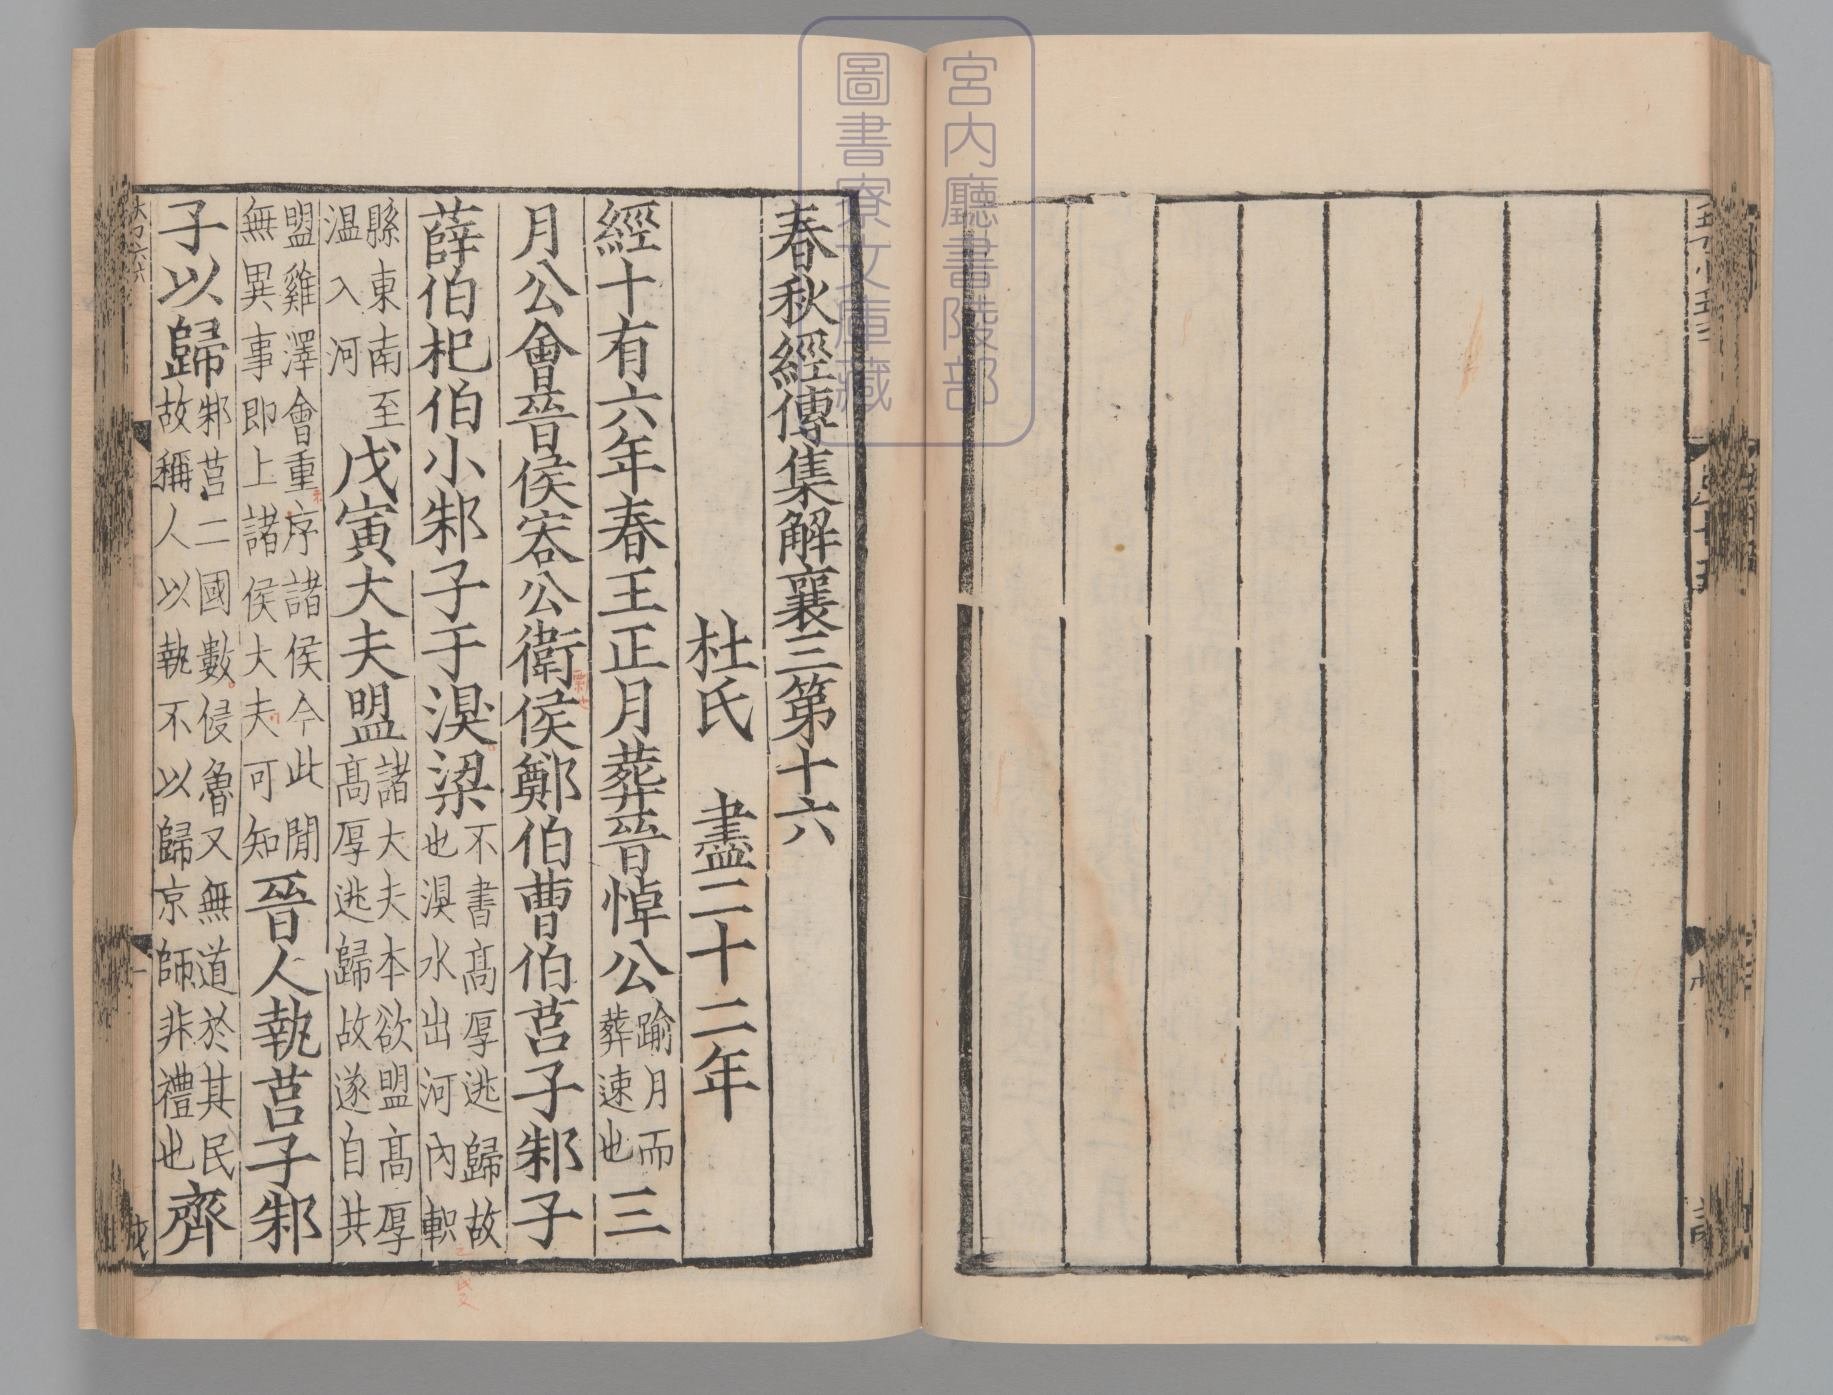 宮内廳書陵部
圖書寮文庫藏
春秋經傳集解襄三第十六
杜氏　盡二十二年
經十有六年春王正月葬晉悼公踰月而葬速也三
月公會晉侯宋公衛侯鄭伯曹伯莒子邾子
薛伯杞伯小邾子于溴梁不書高厚逃歸故也溴水出河內軹
縣東南至溫入河戊寅大夫盟諸大夫本欲盟高厚高厚逃歸故遂自共
盟雞澤會重序諸侯今此間無異事即上諸侯大夫可知晉人執莒子邾
子以歸邾莒二國數侵魯又無道於其民故稱人以執不以歸京師非禮也齊